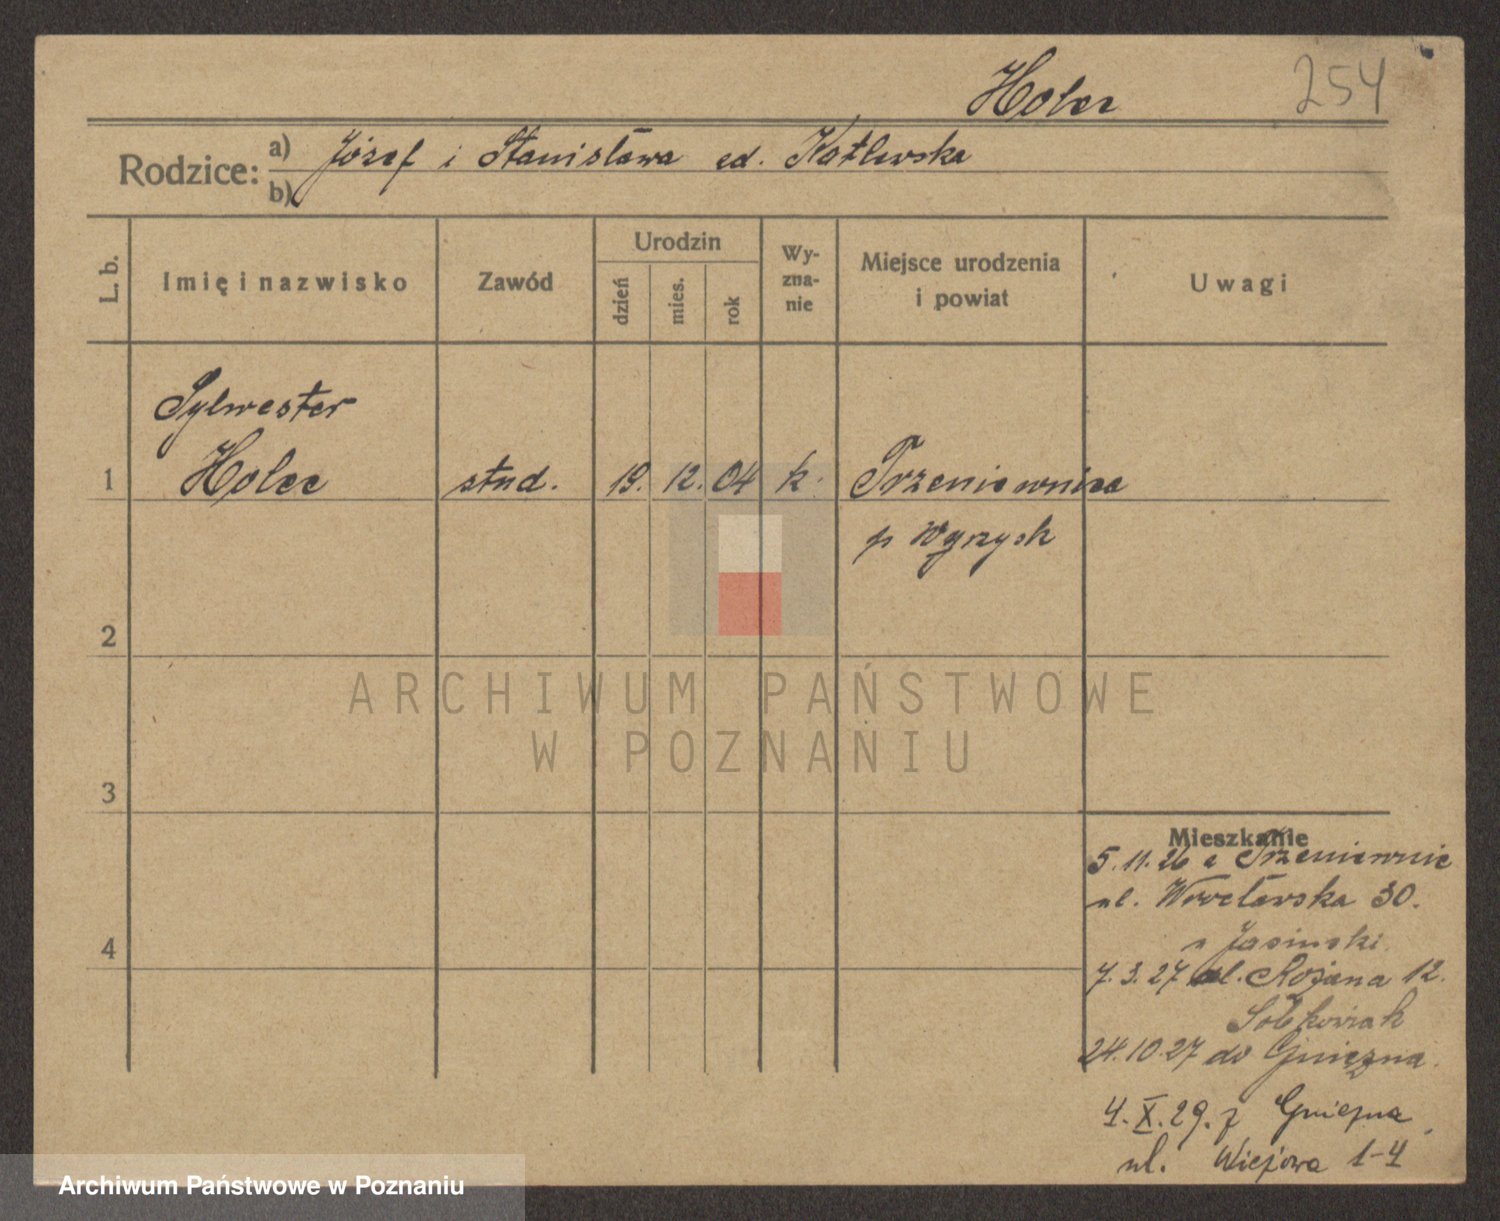 Holec
254
Rodzice: a) Józef i Stanisława zd. Kotlewska
b)
L. b.
Imię i nazwisko
Zawód
Urodzin
dzień
mies.
rok
Wy-
zna-
nie
Miejsce urodzenia
i powiat
Uwagi
Sylwester
1 Holec stud. 19. 12. 04 k. Trzeniewnica
p Wyrzysk
2
3
4
Mieszkanie
5.11.26 z Trzeniewnic
ul. Wrocławska 30.
Jasinski
7.3.27 ul. Różana 12.
Sobkowiak
24.10.27 do Gniezna.
4.X.29. z Gniezna
ul. Wiejowa 1-4
ARCHIWUM PAŃSTWOWE
W POZNANIU
Archiwum Państwowe w Poznaniu